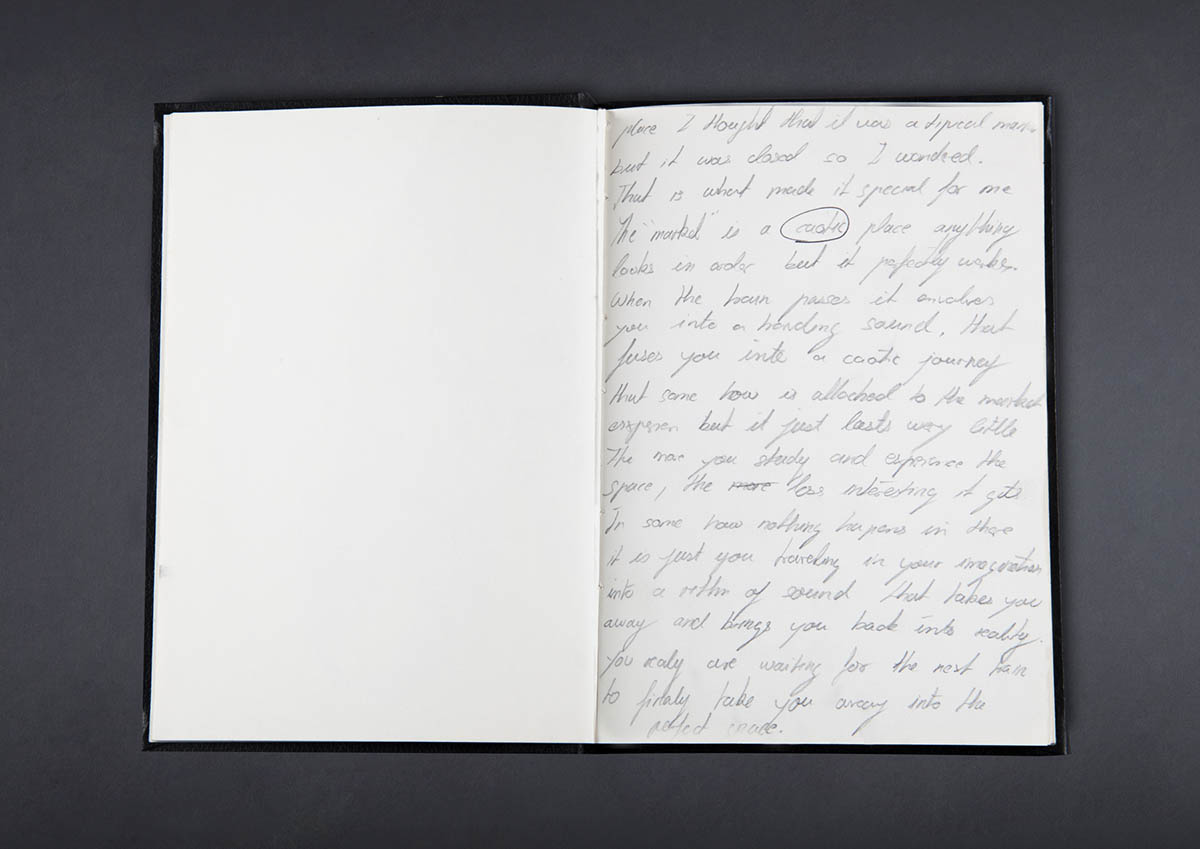 place I thought that it was a tipical
but it was closed so I wondred.
That is what made it special for me
The "market" is a caotic place anything
looks in order but it perfectly works.
When the train passes it envolves
you into a sound, that
fuses you into a caotic journey
that some how is attached to the market
but it just lasts very little
The more you study and experience the
space, the more less interesting it gets
In some how nothing hapens in there
it is just you traveling in your imagination
into a rithm of sound that takes you
away and brings you back into reality.
You realy are waiting for the next train
to finaly take you away into the
perfect space.